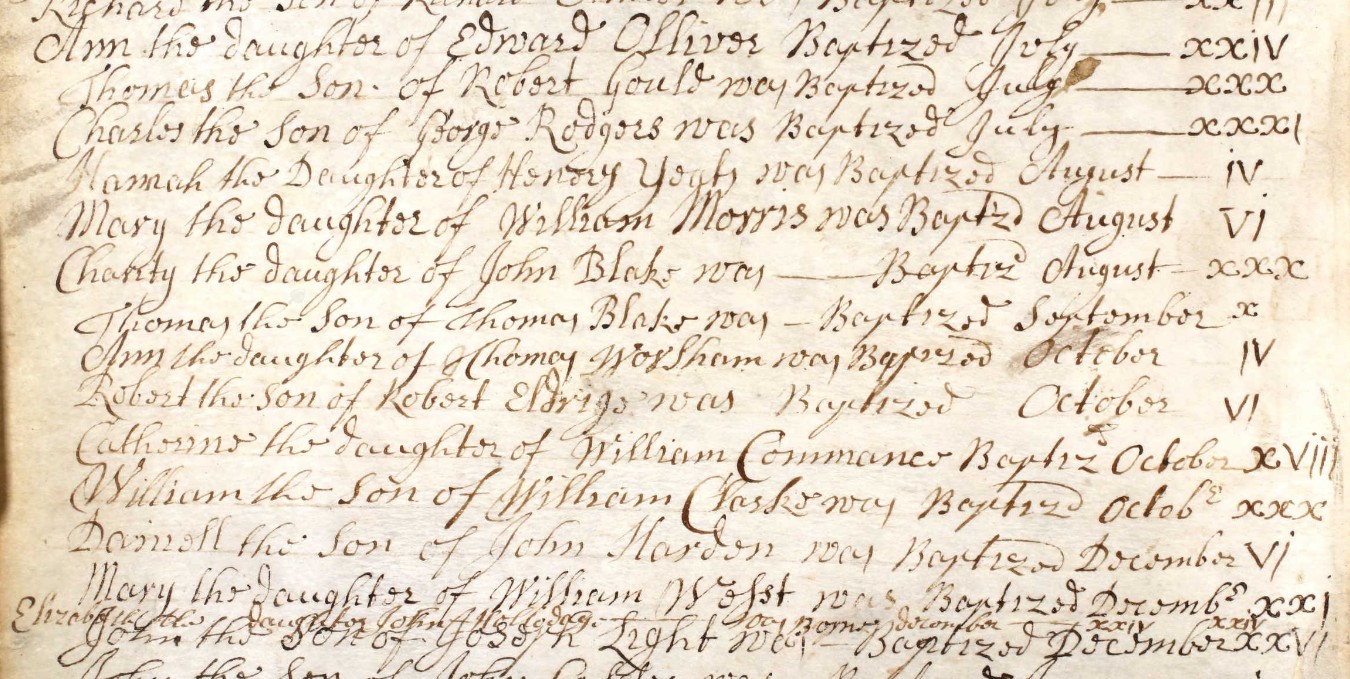 Richard the Son of Baptized July xxiii
Ann the daughter of Edward Olliver Baptized July xxiv
Thomas the Son of Robert Gould was Baptized July xxx
Charles the Son of George Rodgers was Baptized July xxxi
Hannah the Daughter of Henery Yeats was Baptized August iv
Mary the daughter of William Morris was Baptzd August vi
Charity the daughter of John Blake was Baptizd August xxx
Thomas the Son of Thomas Blake was Baptized September x
Ann the daughter of Thomas Worsham was Baptized October iv
Robert the Son of Robert Eldrige was Baptized October vi
Catherine the daughter of William Commance Baptiz October xviii
William the Son of William Clarke was Baptizd Octobr xxx
Daniell the Son of John Harden was Baptized December vi
Mary the daughter of William Wesst was Baptized Decembr xxi
Elizabeth the daughter John was Borne december xxiv xxiv
John the Son of Joseph Light was Baptized December xxvi
John the Son of John was